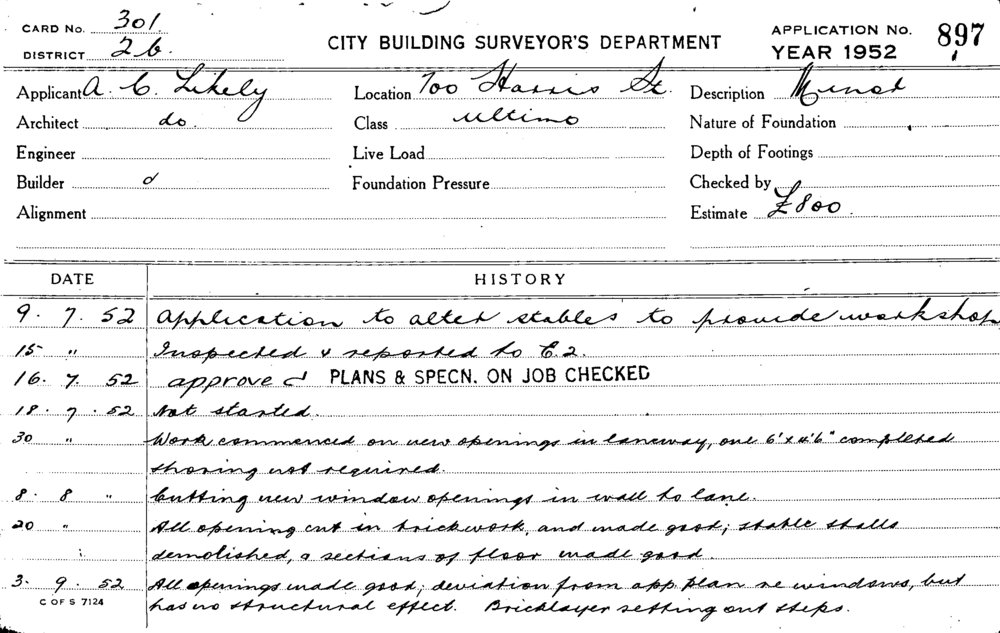 CARD No. 301
DISTRICT 2b.
CITY BUILDING SURVEYOR'S DEPARTMENT
APPLICATION No. 897
YEAR 1952
Applicant A. C. Likely Location 700 Harris St. Description Minor
Architect do. Class Ultimo Nature of Foundation
Engineer Live Load Depth of Footings
Builder d Foundation Pressure Checked by
Alignment Estimate £800.
DATE HISTORY
9. 7. 52 Application to alter stables to provide workshop
15 " Inspected & reported to E.2.
16. 7. 52 approved PLANS & SPECN. ON JOB CHECKED
18. 7. 52 Not started.
30 " Work commenced on new openings in laneway, one 6'x4'6" completed
shoring not required.
8. 8 " Cutting new window openings in wall to lane.
20 " All opening cut in brickwork, and made good; stable stalls
demolished, & sections of floor made good.
3. 9. 52 All openings made good; deviation from app plan re windows, but
C OF S 7124 has no structural effect. Bricklayer setting out steps.